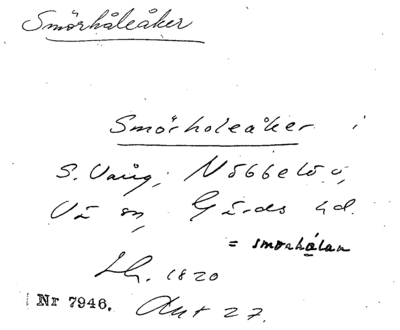 Smörhåleåker
Smörholeåker i
S. Vång, Nöbbelöv,
Vä sn, Gärds hd.
= smörhålan
Lh. 1820
Nr 7946. Akt 27.